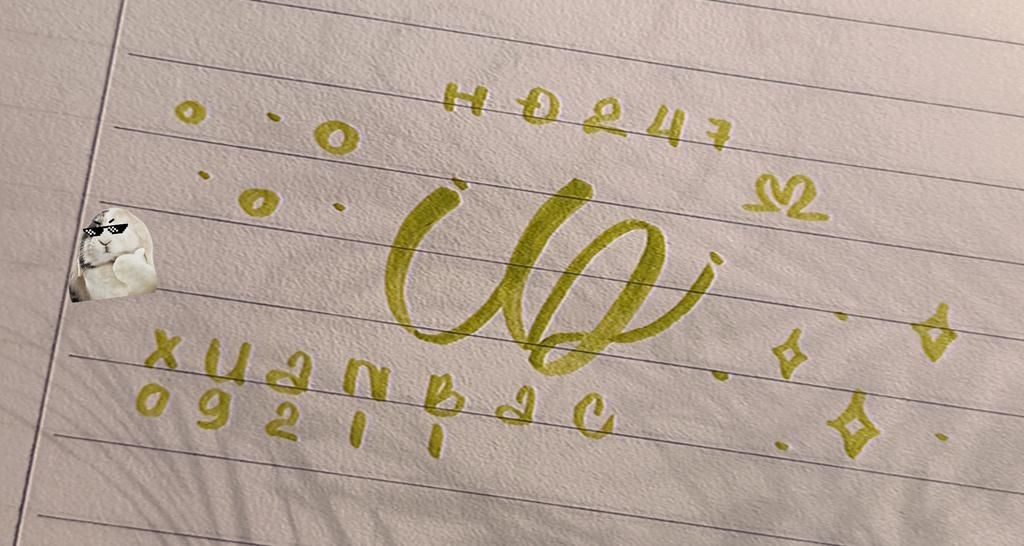 HĐ247
Ue
XUaNBaC
09211